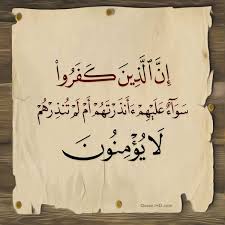 إِنَّ ٱلَّذِينَ كَفَرُوا۟
سَوَآءٌ عَلَيْهِمْ ءَأَنذَرْتَهُمْ أَمْ لَمْ تُنذِرْهُمْ
لَا يُؤْمِنُونَ